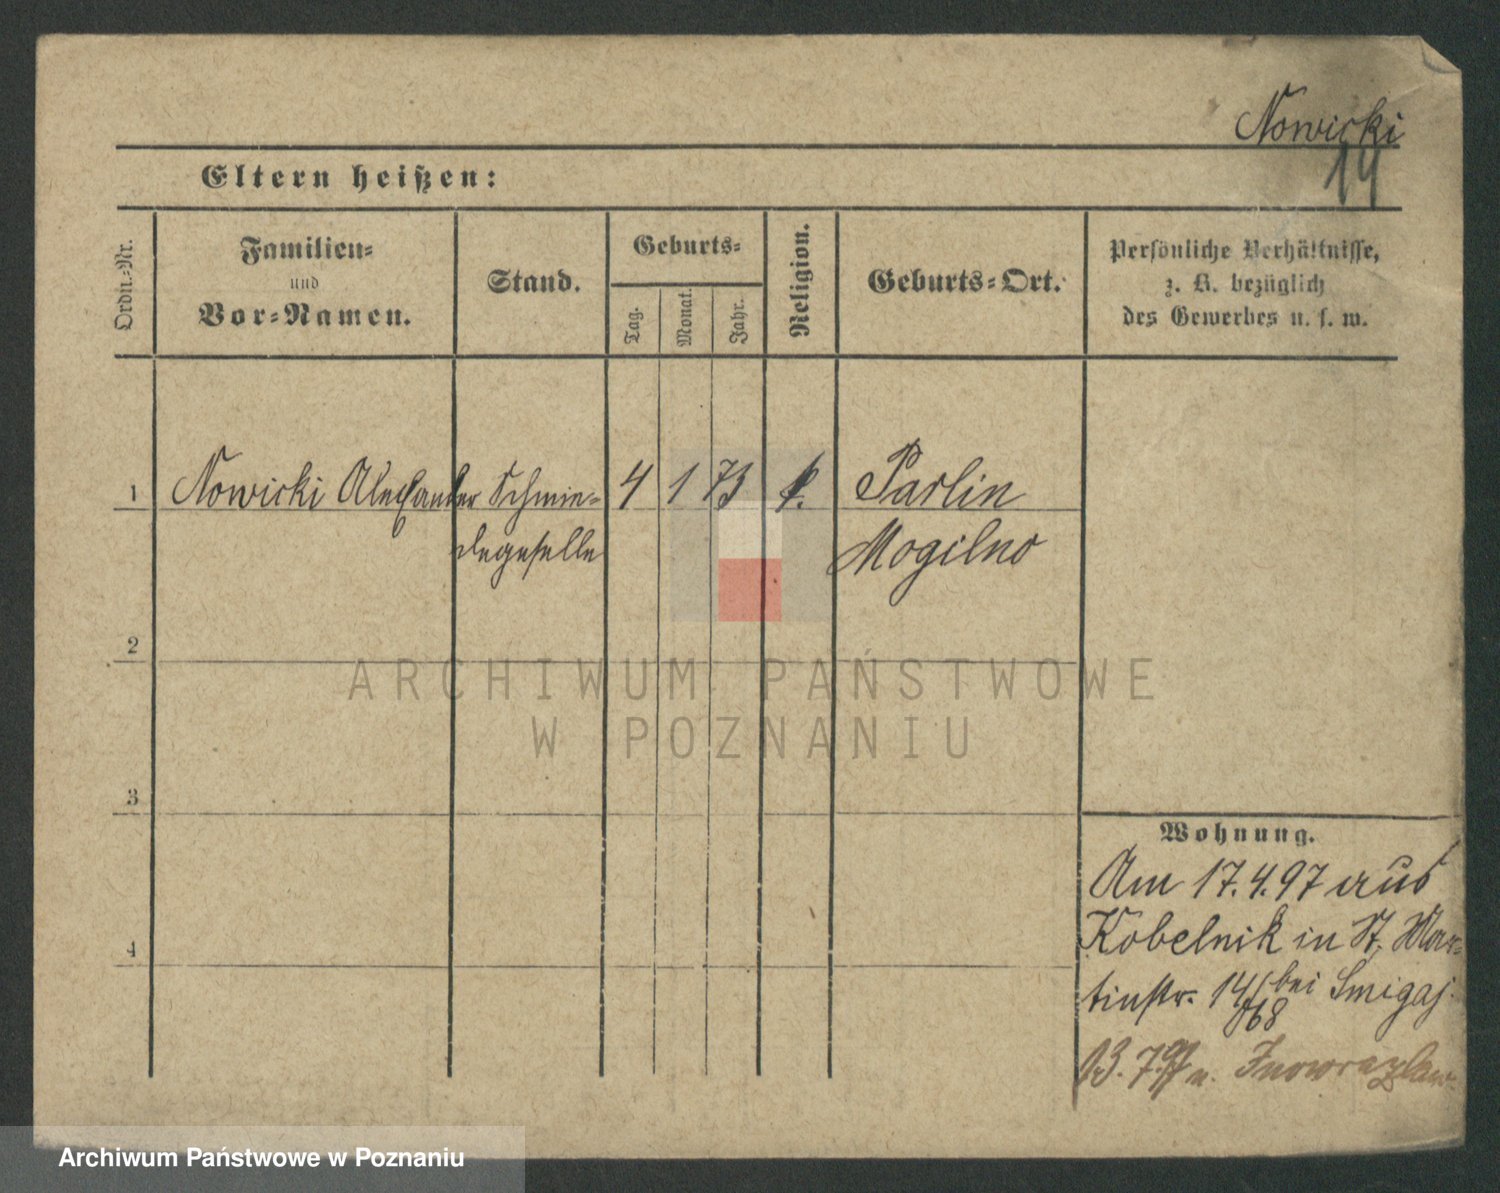 Nowicki
19
Eltern heißen:
Ordn.-Nr.
Familien-
und
Vor-Namen.
Stand.
Geburts-
Tag.
Monat.
Jahr.
Religion.
Geburts-Ort.
Persönliche Verhältnisse,
z. B. bezüglich
des Gewerbes u. s. w.
1 Nowicki Alexander Schmie- 4 1 73 k. Parlin
degeselle Mogilno
2
ARCHIWUM PAŃSTWOWE
W POZNANIU
3
Wohnung.
Am 17.4.97 aus
Kobelnik in St. Mar-
4
tinstr. 14 bei Smigaj
68
13.7.97 n. Inowrazlaw.
Archiwum Państwowe w Poznaniu